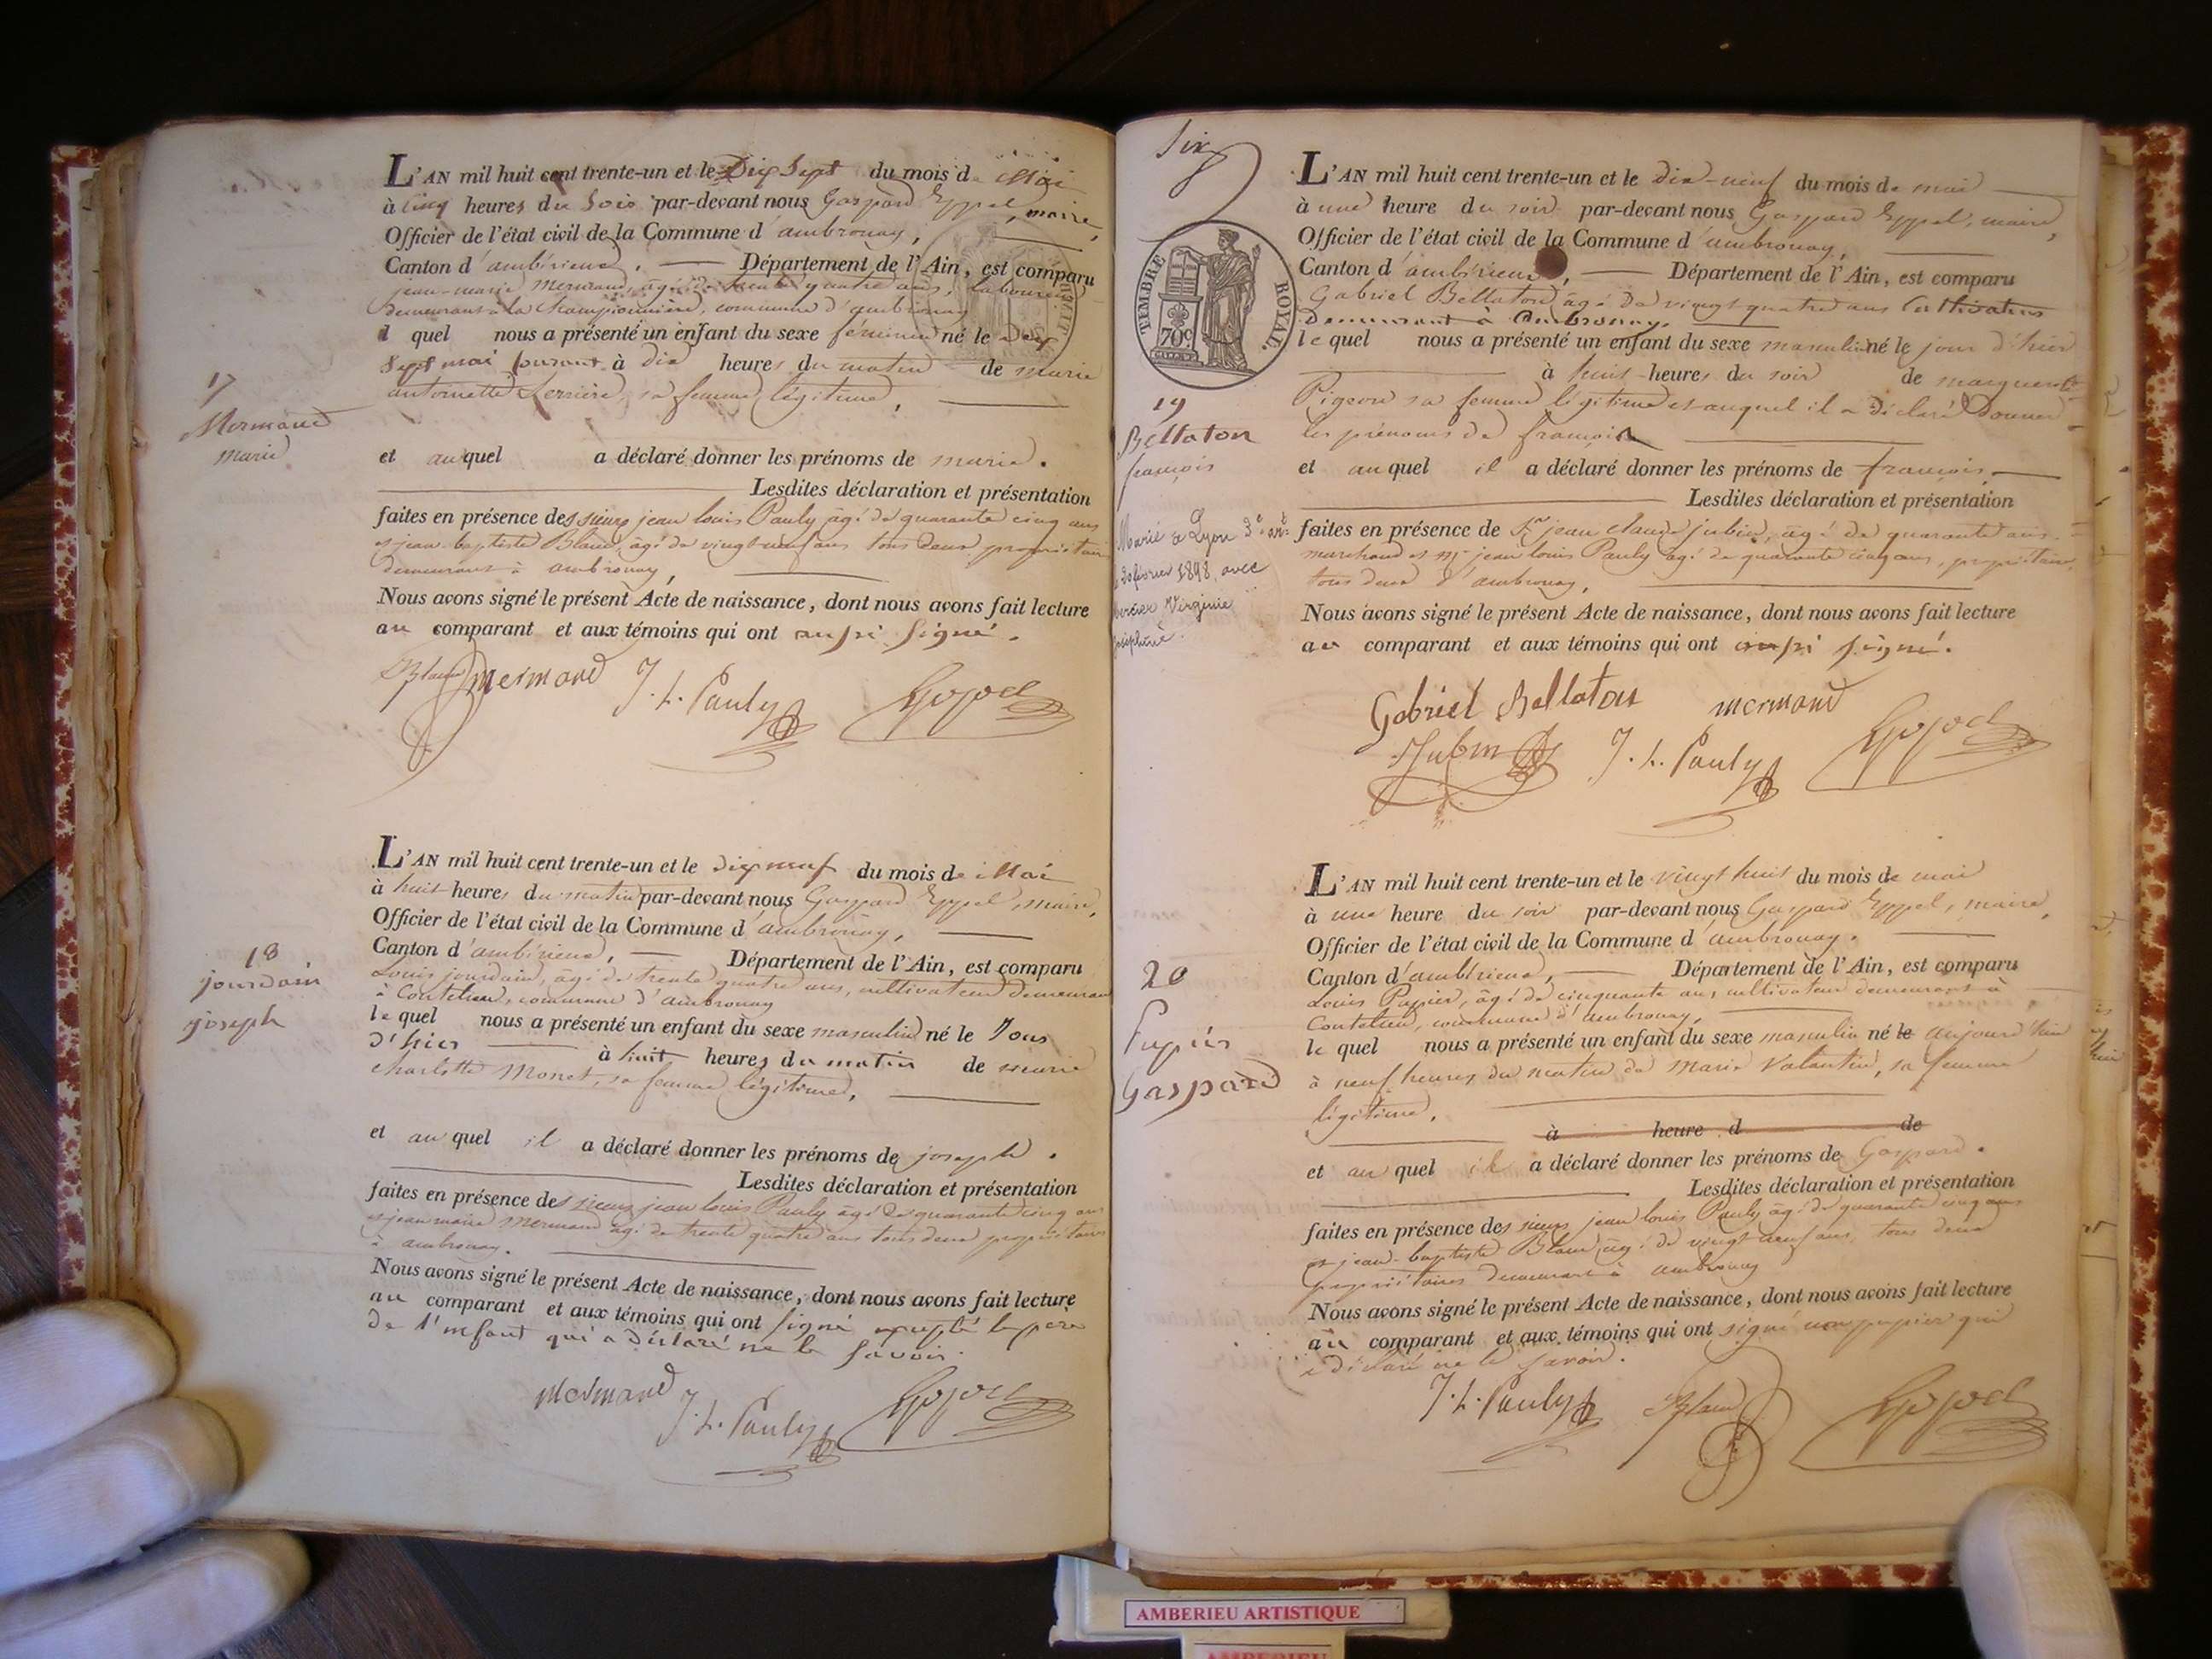 17
Mermand
marie
L'AN mil huit cent trente-un et le Dix Sept du mois de Mai
à cinq heures du Soir par-devant nous Gaspard Eppel, maire,
Officier de l'état civil de la Commune d'ambronay,
Canton d'ambérieux, Département de l'Ain, est comparu
jean-marie Mermand, âgé de trente quatre ans, laboureur
demeurant à la Championnière, commune d'ambronay
lequel nous a présenté un enfant du sexe féminin né le dix
Sept mai courant à dix heures du matin de marie
antoinette Ferrière, sa femme légitime,
et auquel a déclaré donner les prénoms de marie.
Lesdites déclaration et présentation
faites en présence des sieurs jean louis Pauly âgé de quarante cinq ans
et jean-baptiste Blanc, âgé de vingt neuf ans tous deux propriétaires
demeurant à ambronay,
Nous avons signé le présent Acte de naissance, dont nous avons fait lecture
au comparant et aux témoins qui ont aussi signé.
Blanc mermand J. L. Pauly
18
jourdain
joseph
L'AN mil huit cent trente-un et le dix neuf du mois de Mai
à huit heures du matin par-devant nous Gaspard Eppel, maire,
Officier de l'état civil de la Commune d'ambronay,
Canton d'ambérieux, Département de l'Ain, est comparu
Louis jourdain, âgé de trente quatre ans, cultivateur demeurant
à Coutelieu, commune d'ambronay
lequel nous a présenté un enfant du sexe masculin né le Jour
d'hier à huit heures du matin de marie
charlotte Monet, sa femme légitime,
et auquel il a déclaré donner les prénoms de joseph.
Lesdites déclaration et présentation
faites en présence des sieurs jean louis Pauly âgé de quarante cinq ans
et jean marie Mermand âgé de trente quatre ans tous deux propriétaires
à ambronay.
Nous avons signé le présent Acte de naissance, dont nous avons fait lecture
au comparant et aux témoins qui ont signé excepté le père
de l'enfant qui a déclaré ne le savoir.
mermand J. L. Pauly
Six
TIMBRE ROYAL.
70c
19
Bellaton
françois
Marié à Lyon 3e art
février 1898, avec
Mercier Virginie
Joséphine.
L'AN mil huit cent trente-un et le dix-neuf du mois de mai
à une heure du soir par-devant nous Gaspard Eppel, maire,
Officier de l'état civil de la Commune d'ambronay,
Canton d'ambérieux, Département de l'Ain, est comparu
Gabriel Bellaton, âgé de vingt quatre ans Cultivateur
Demeurant à Ambronay.
lequel nous a présenté un enfant du sexe masculin né le jour d'hier
à huit heures du soir de marguerite
Pigeon sa femme légitime et auquel il a déclaré donner
les prénoms de françois
et auquel il a déclaré donner les prénoms de françois,
Lesdites déclaration et présentation
faites en présence de Sr jean claude jubin, âgé de quarante ans
marchand et Mr jean louis Pauly âgé de quarante cinq ans, propriétaire,
tous deux d'ambronay,
Nous avons signé le présent Acte de naissance, dont nous avons fait lecture
au comparant et aux témoins qui ont aussi signé.
Gabriel Bellaton mermand
Jubin J. L. Pauly
20
Papier
Gaspard
L'AN mil huit cent trente-un et le vingt huit du mois de mai
à une heure du soir par-devant nous Gaspard Eppel, maire,
Officier de l'état civil de la Commune d'ambronay.
Canton d'ambérieux, Département de l'Ain, est comparu
Louis Papier, âgé de cinquante ans, cultivateur demeurant à
Coutelieu, commune d'ambronay,
lequel nous a présenté un enfant du sexe masculin né le aujourd'hui
à neuf heures du matin de Marie Valentin, sa femme
légitime.
à heure d de
et auquel il a déclaré donner les prénoms de Gaspard.
Lesdites déclaration et présentation
faites en présence des sieurs jean louis Pauly âgé de quarante cinq ans
et jean-baptiste Blanc, âgé de vingt neuf ans, tous deux
propriétaires demeurant à ambronay
Nous avons signé le présent Acte de naissance, dont nous avons fait lecture
au comparant et aux témoins qui ont signé non papier qui
a déclaré ne le savoir.
J. L. Pauly Blanc
AMBERIEU ARTISTIQUE
AMBERIEU